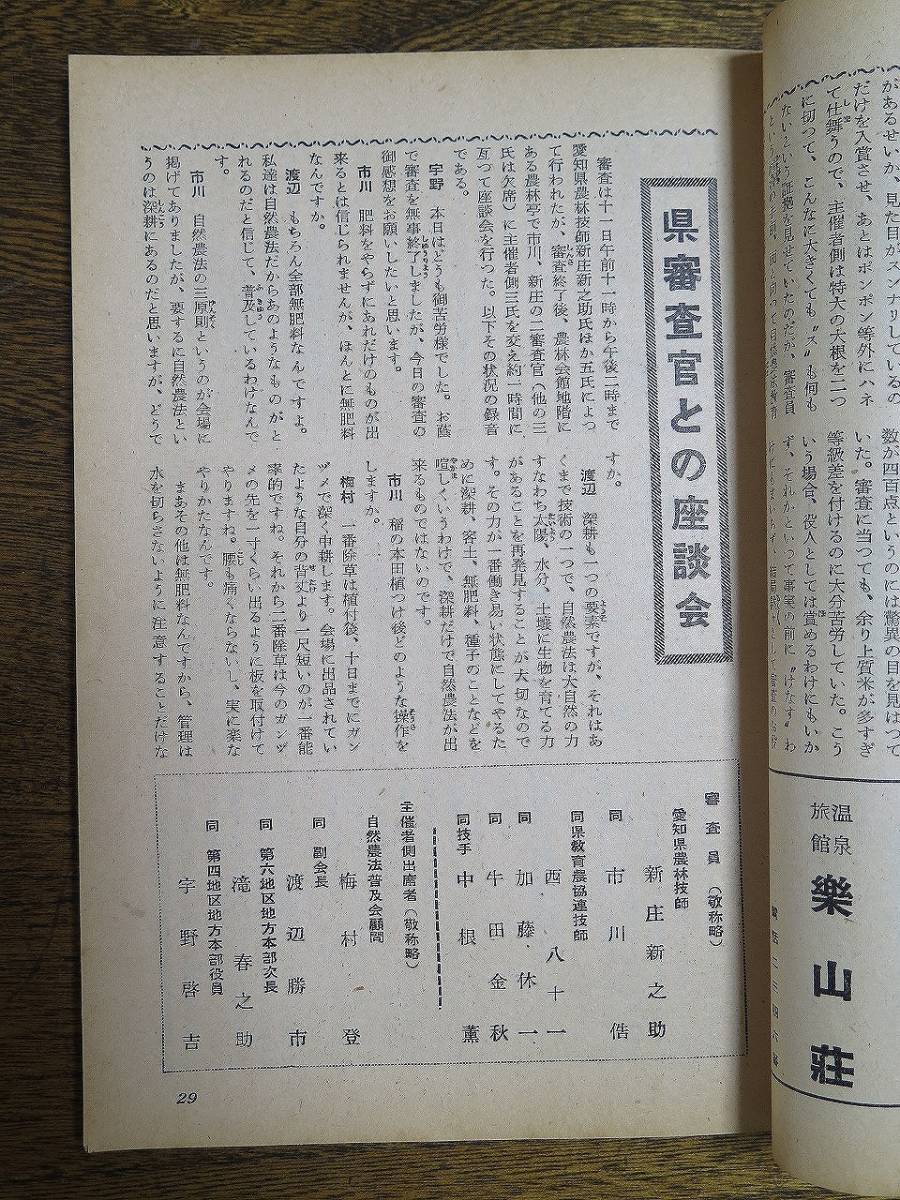 があるせいか、見た目がスンナリしているの
だけを入賞させ、あとはポンポン等外にハネ
て仕舞うので、主催者側は特大の大根を二つ
に切って、こんなに大きくても〝ス〟も何も
ないという証拠を見せていたのだが、審査員
数が四百点というのには驚異の目を見はって
いた。審査に当つても、余り上質米が多すぎ
等級差を付けるのに大分苦労していた。こう
いう場合、役人としては賞めるわけにもいか
ず、それかといつて事実の前に〝けなす〟わ
温泉旅館
樂山荘
県審査官との座談会
審査は十一日午前十一時から午後二時まで
愛知県農林技師新庄新之助氏ほか五氏によつ
て行われたが、審査終了後、農林会館地階に
ある農林亭で市川、新庄の二審査官(他の三
氏は欠席)に主催者側三氏を交え約一時間に
亙つて座談会を行つた。以下その状況の録音
である。
宇野 本日はどうも御苦労様でした。お蔭
で審査を無事終了しましたが、今日の審査の
御感想をお願いしたいと思います。
市川 肥料をやらずにあれだけのものが出
来るとは信じられませんが、ほんとに無肥料
なんですか。
渡辺 もちろん全部無肥料なんですよ。
私達は自然農法だからあのようなものがと
れるのだと信じて、普及しているわけなんで
す。
市川 自然農法の三原則というのが会場に
掲げてありましたが、要するに自然農法とい
うのは深耕にあるのだと思いますが、どうで
すか。
渡辺 深耕も一つの要素ですが、それはあ
くまで技術の一つで、自然農法は大自然の力
すなわち太陽、水分、土壌に生物を育てる力
があることを再発見することが大切なので
す。その力が一番働き易い状態にしてやるた
めに深耕、客土、無肥料、種子のことなどを
喧しくいうわけで、深耕だけで自然農法が出
来るものではないのです。
市川 稲の本田植つけ後どのような操作を
しますか。
梅村 一番除草は植付後、十日までにガン
ヅメで深く中耕します。会場に出品されてい
たような自分の背丈より一尺短いのが一番能
率的ですね。それから二番除草は今のガンヅ
メの先を一寸くらい出るように板を取付けて
やりますね。腰も痛くならないし、実に楽な
やりかたなんです。
まあその他は無肥料なんですから、管理は
水を切らさないように注意することだけな
審査員(敬称略)
愛知県農林技師
新庄新之助
同 市川 俈
同県教育農協連技師
西 八十一
同 加藤休一
同 牛田金秋
同技手 中根 薫
主催者側出席者(敬称略)
自然農法普及会顧問
梅村 登
同 副会長
渡辺勝市
同 第六地区地方本部次長
滝 春之助
同 第四地区地方本部役員
宇野啓吉
29